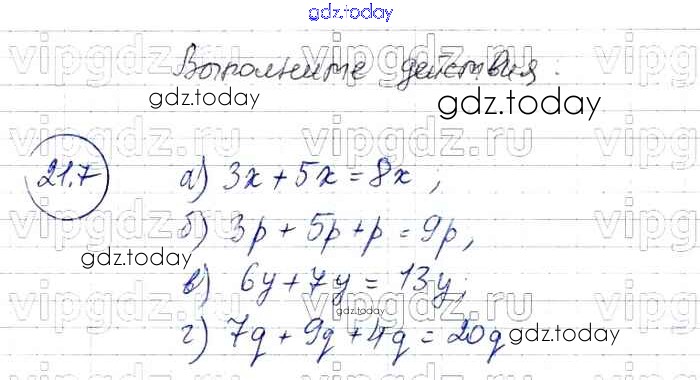 gdz.today
vipgdz.ru vipgdz.ru
Выполните действия.
gdz.today gdz.today
vipgdz.ru vipgdz.ru
21.7 а) 3x + 5x = 8x ;
vipgdz.ru vipgdz.ru
б) 3p + 5p + p = 9p,
gdz.today
в) 6y + 7y = 13y;
vipgdz.ru vipgdz.ru
г) 7q + 9q + 4q = 20q
gdz.today